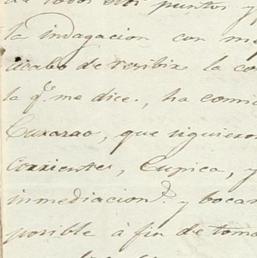 de todos estos puntos y
la indagacion con me
acabo de recibir la co
la q.e me dice, ha comi
Curazao, que siguieron
Corrientes, Cupica, y
inmediacion.s y bocas
posible á fin de toma